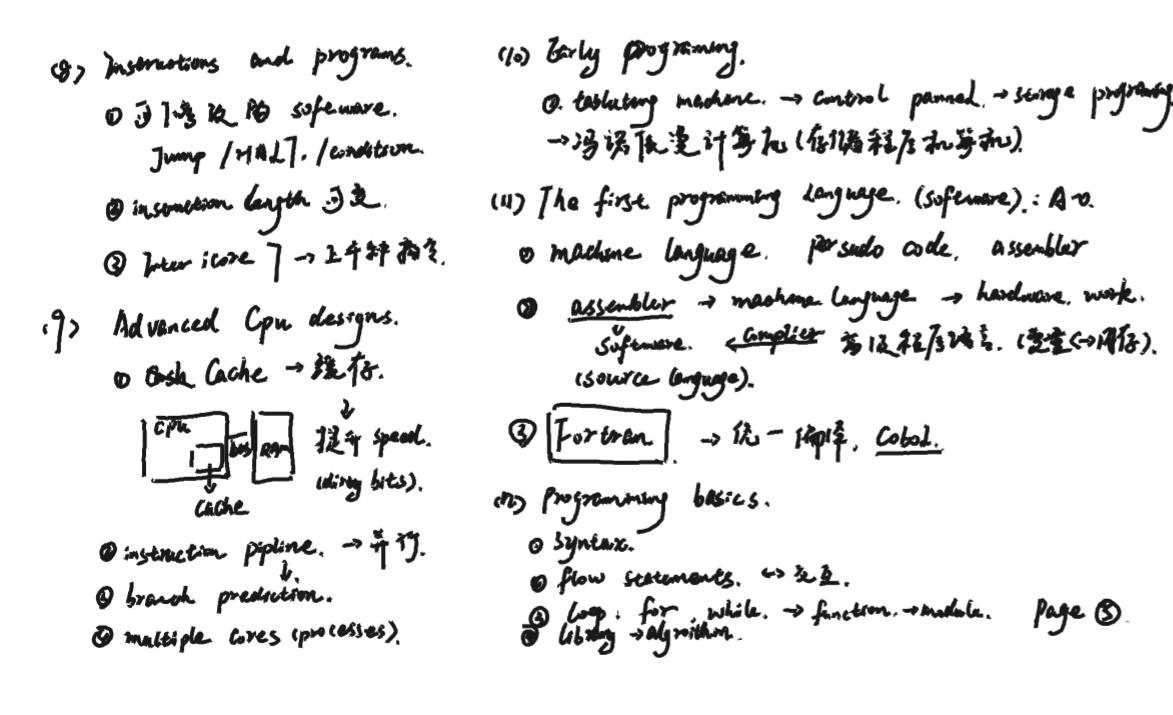 (8) Instructions and programs.
① 可修改的 sofeware.
Jump / HALT. / condition.
② instruction length 可变.
③ Inter icore 7 → 上千种指令.
(9) Advanced Cpu designs.
① Cache → 缓存.
CPU bus RAM
Cache
提升 speed.
(dirty bits).
② instruction pipline. → 并行.
③ branch prediction.
④ multiple cores (processes).
(10) Early programing.
①. tabluting machine. → control pannel. → storge prgraming
→ 冯诺依曼计算机 (存储程序计算机).
(11) The first programming language. (software).: A-0.
① machine language. persudo code. assembler
② assembler → machine language → hardware. work.
software. ← complier 高级程序语言. (变量↔内存).
(source language).
③ Fortran. → 统一编译. Cobol.
(12) Programming basics.
① Syntax.
② flow statements. ↔ 交互.
③ Loop: for, while. → function. → module.
④ library → algorithm.
Page ③